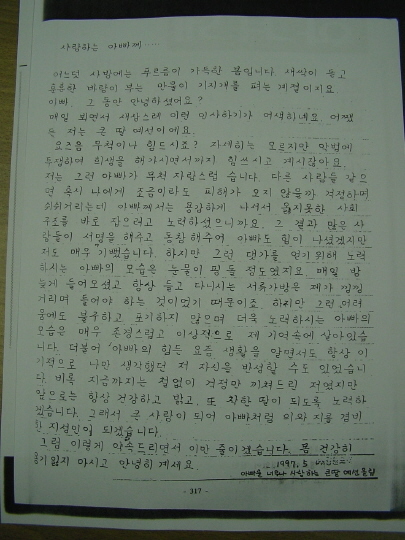 사랑하는 아빠께 ....
어느덧 사방에는 푸르름이 가득한 봄입니다. 새싹이 돋고
훈훈한 바람이 부는 만물이 기지개를 펴는 계절이지요
아빠. 그 동안 안녕하셨어요?
매일 뵈면서 새삼스레 이런 인사하기가 어색하네요. 어쨌
든 저는 큰 딸 예선이에요.
요즈음 무척이나 힘드시죠? 자세히는 모르지만 악법에
투쟁하며 희생을 해가시면서까지 힘쓰시고 계시잖아요.
저는 그런 아빠가 무척 자랑스럽습니다. 다른 사람들 같으
면 혹시 나에게 조금이라도 피해가 오지 않을까 걱정하며
회피하는데 아빠께서는 용감하게 나서서 옳지못한 사회
구조를 바로 잡으려고 노력하셨으니까요. 그 결과 많은 사
람들이 서명을 해주고 동참해주어. 아빠도 힘이 나셨겠지만
저도 매우 기뻤습니다. 하지만 그런 댓가를 얻기위해 노력
하시는 아빠의 모습은 눈물이 핑돌 정도였지요. 매일 밤
늦게 들어오셨고 항상 들고 다니시는 서류가방은 제가 낑낑
거리며 들어야 하는 것이었기 때문이죠. 하지만 그런 어려
움에도 불구하고 포기하지 않으며 더욱 노력하시는 아빠의
모습은 매우 존경스럽고 이상적으로 제 기억속에 살아있습
니다. 더불어 아빠의 힘든 요즘 생활을 알면서도 항상 이
기적으로 나만 생각했던 제 자신을 반성할 수도 있었습니
다. 비록 지금까지는 철없이 걱정만 끼쳐드린 저였지만
앞으로는 항상 건강하고 밝고. 또 착한 딸이 되도록 노력하
겠습니다. 그래서 큰 사람이 되어 아빠처럼 이와 지를 겸비
한 지성인이 되겠습니다.
그럼 이렇게 약속드리면서 이만 줄이겠습니다. 몸 건강히
용기잃지 마시고 안녕히 계세요.
1997. 5
아빠를 너무나 사랑하는 큰딸 예선올림
- 317 -